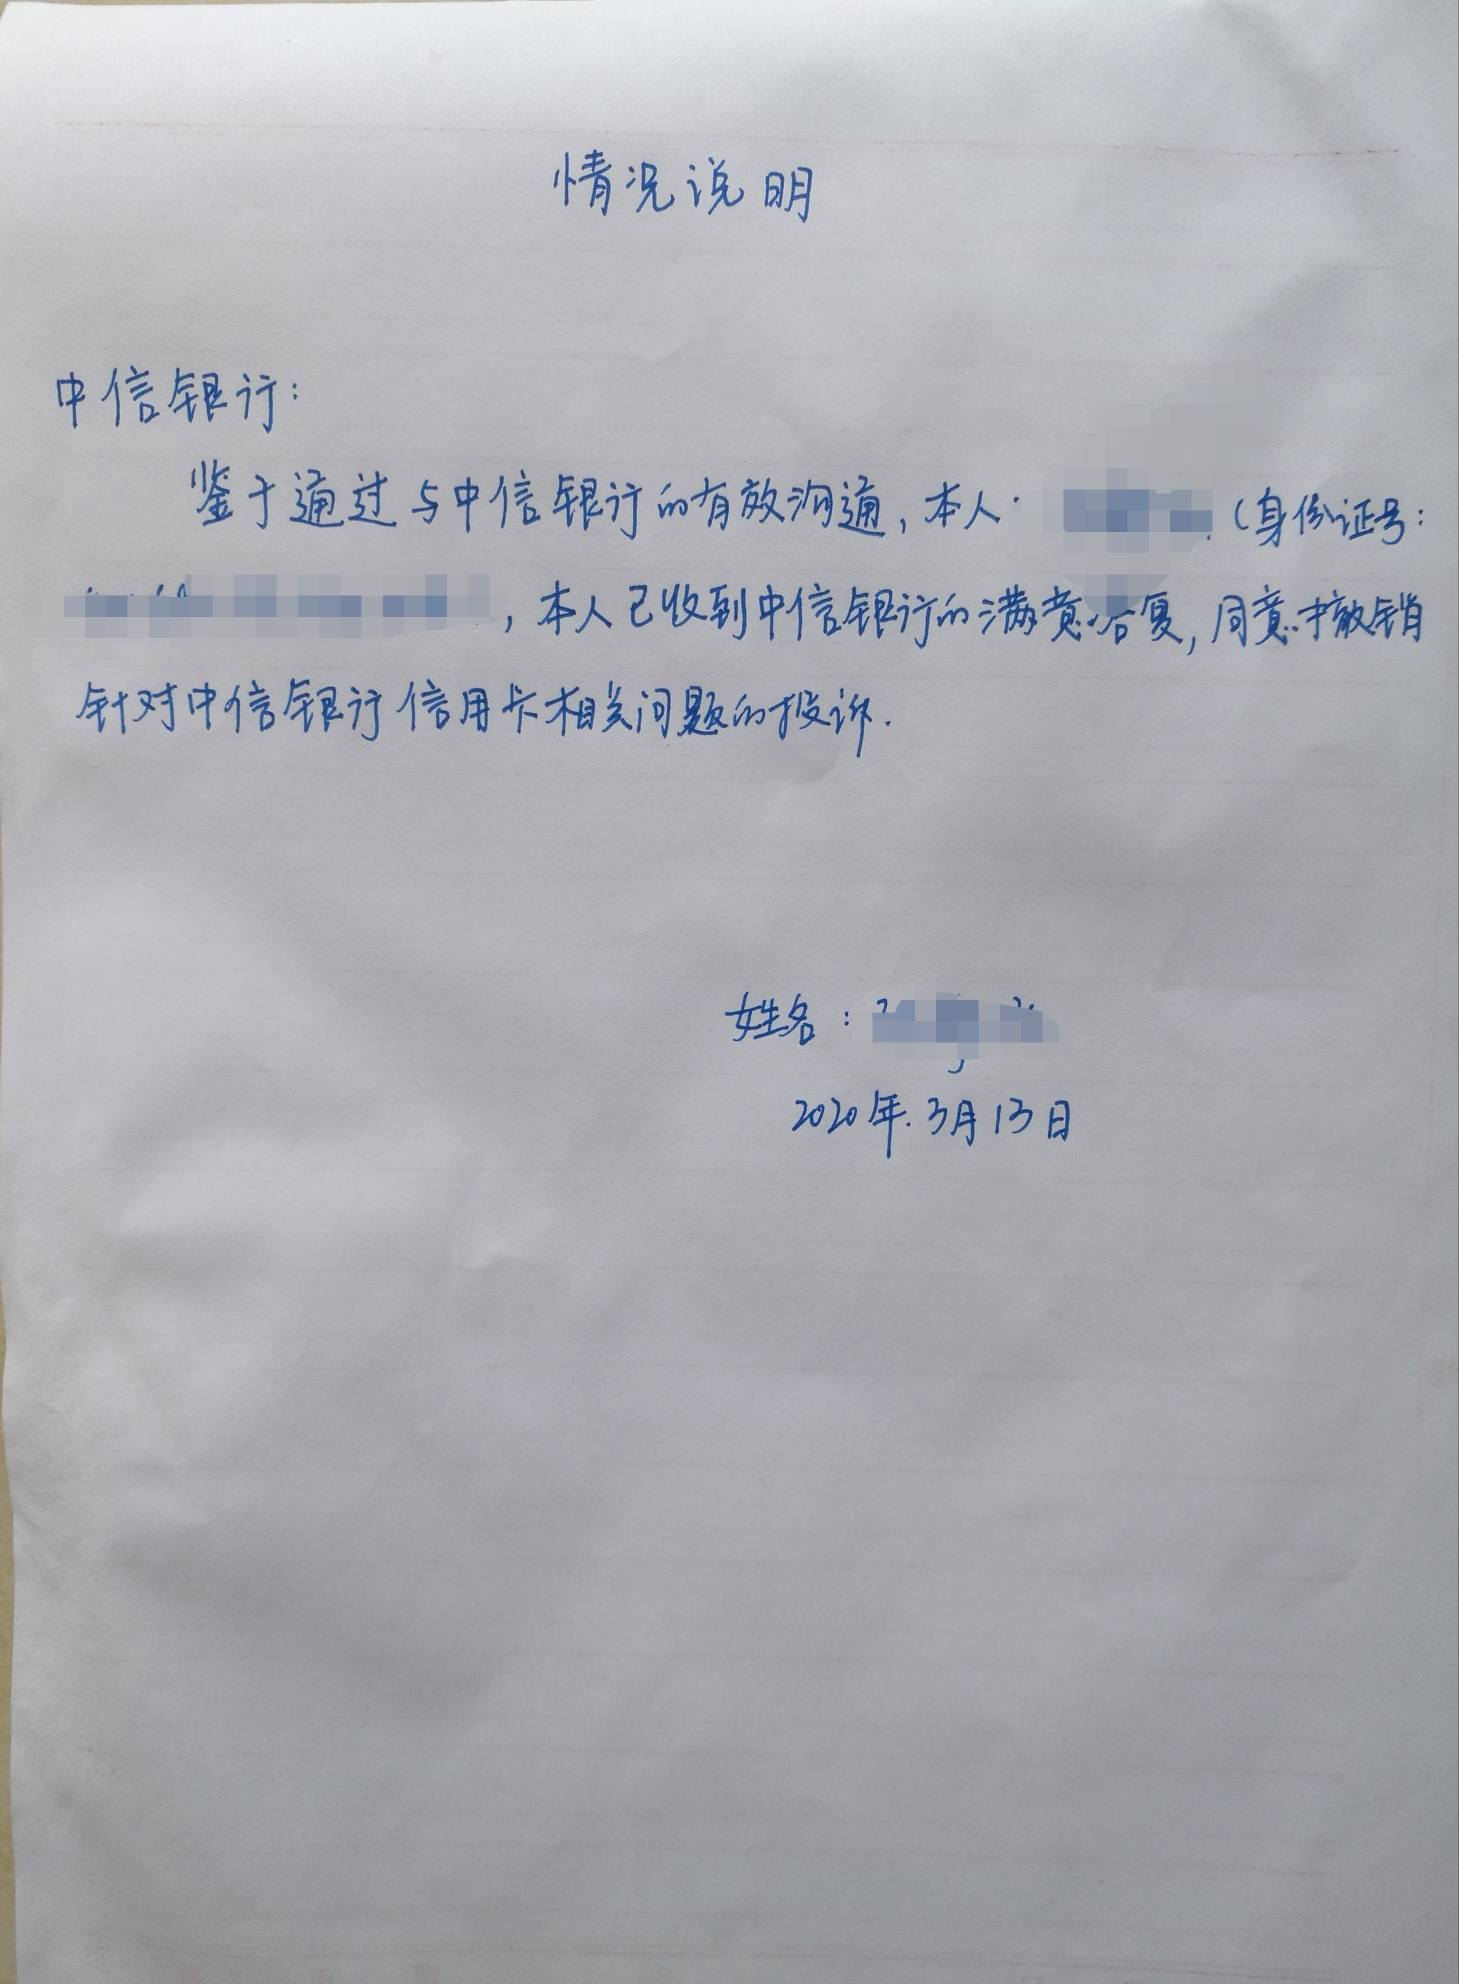 情况说明
中信银行:
鉴于通过与中信银行的有效沟通,本人 (身份证号:
,本人已收到中信银行的满意答复,同意撤销
针对中信银行信用卡相关问题的投诉.
姓名:
2020年.3月13日